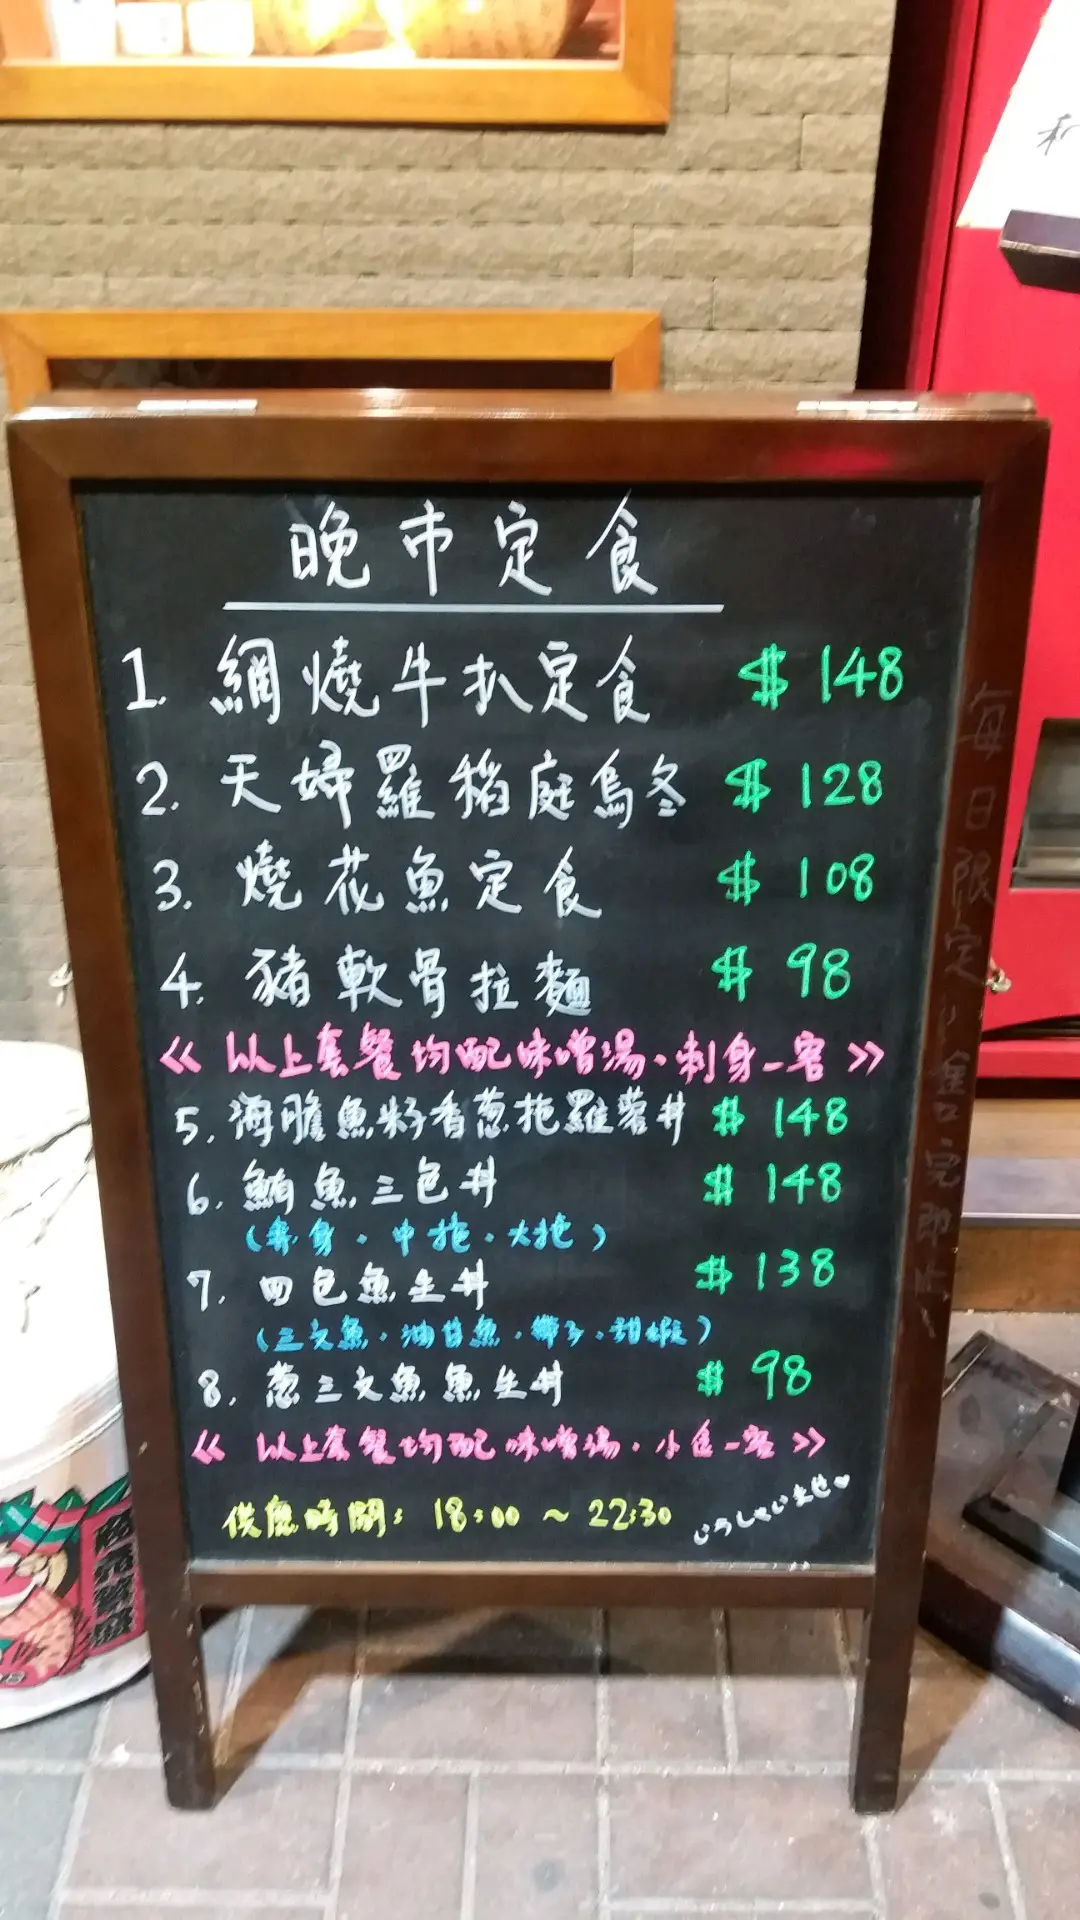 晚市定食
1. 網燒牛扒定食 $148
2. 天婦羅稻庭烏冬 $128
3. 燒花魚定食 $108
4. 豬軟骨拉麵 $98
《 以上套餐均配味噌湯、刺身一客 》
5. 海膽魚籽香葱拖羅蓉丼 $148
6. 鮪魚三色丼 $148
(赤身．中拖．大拖)
7. 四色魚生丼 $138
(三文魚．油甘魚．獅子．甜蝦)
8. 葱三文魚魚生丼 $98
《 以上套餐均配味噌湯．小食一客 》
供應時間: 18:00 ~ 22:30
每日限定